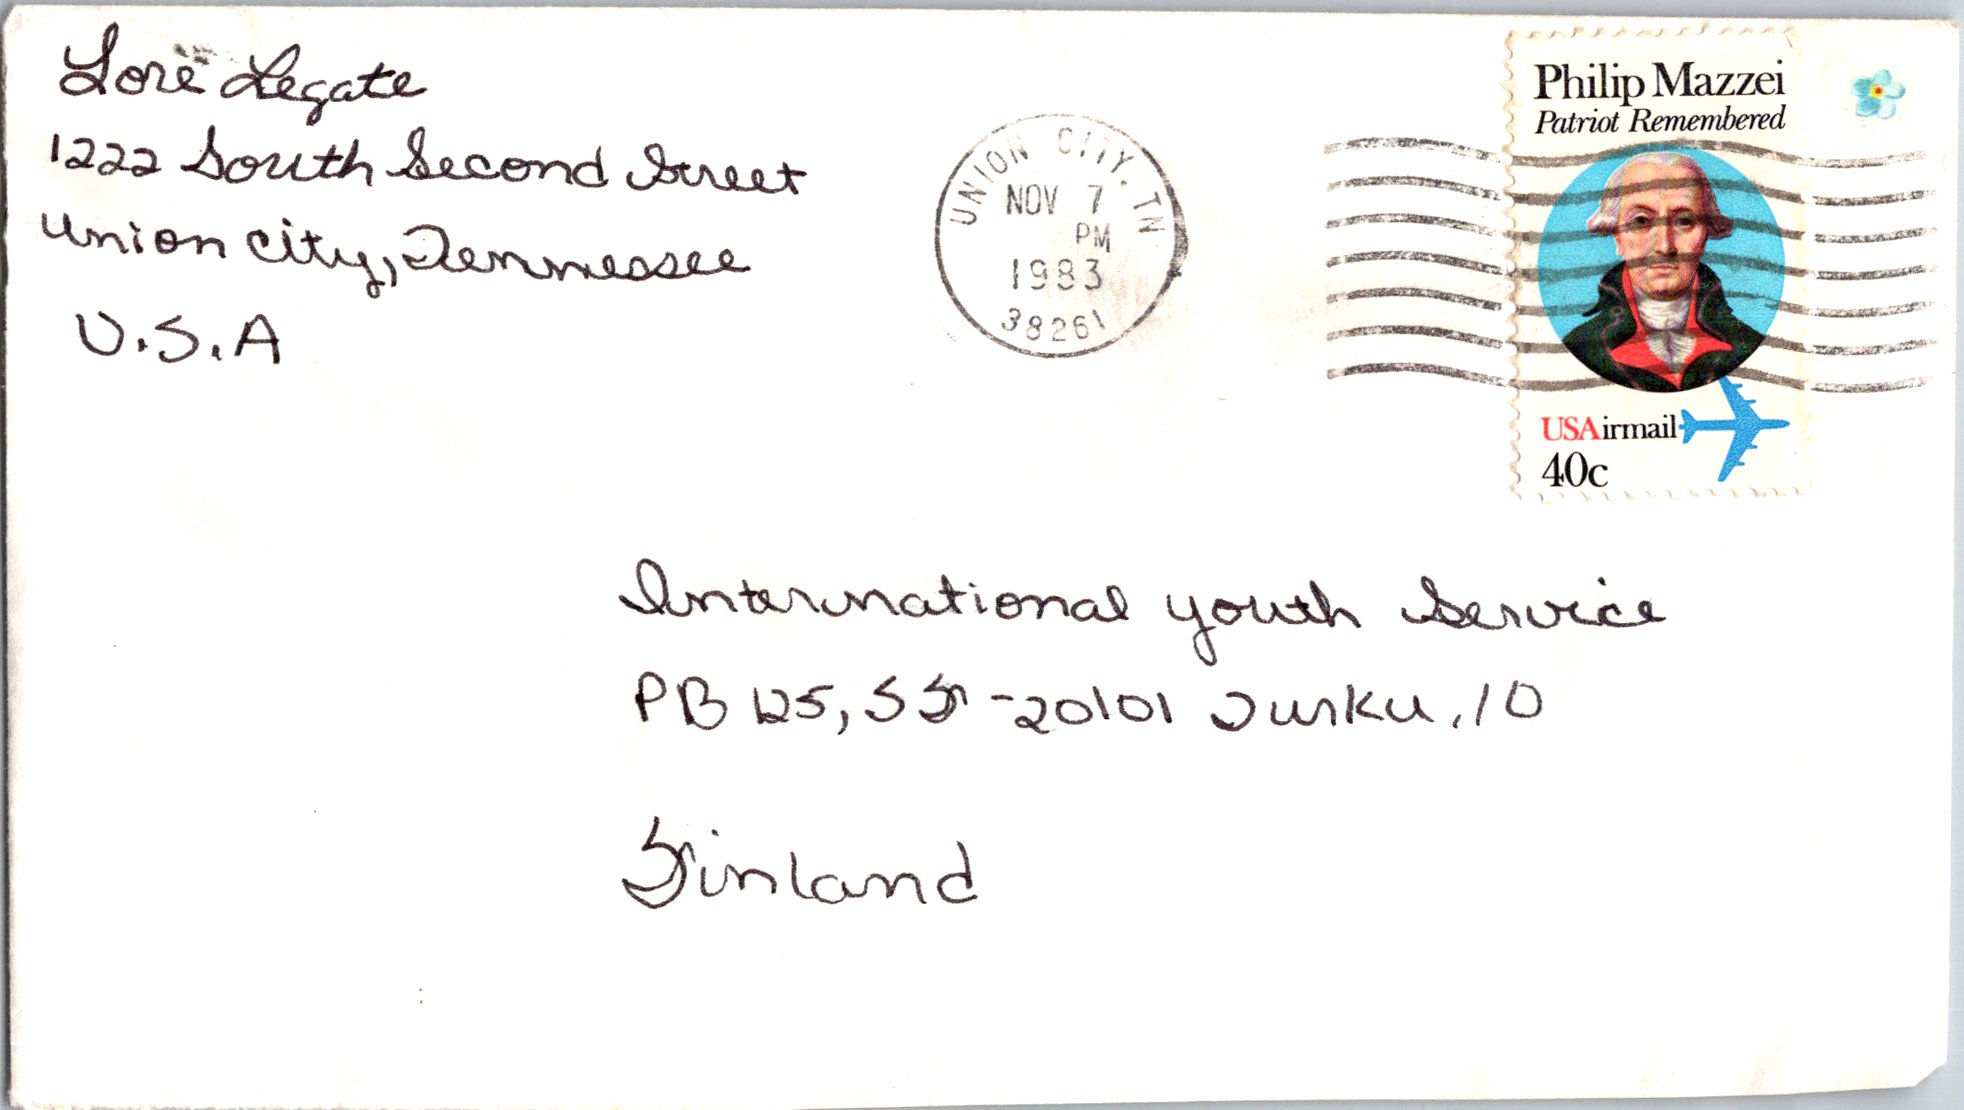 Lore Legate
1222 South Second Street
Union City, Tennessee
U.S.A
UNION CITY, TN
NOV 7
PM
1983
38261
Philip Mazzei
Patriot Remembered
USAirmail
40c
International Youth Service
PB 125, SF-20101 Turku, 10
Finland